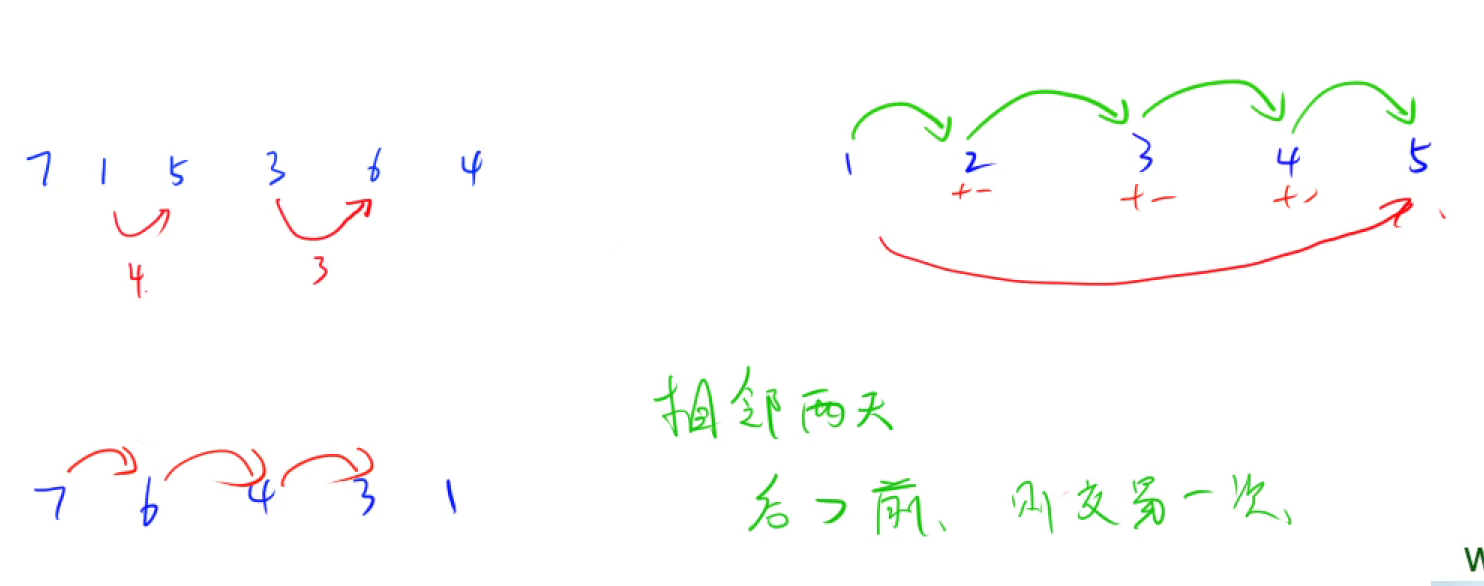 7 1 5 3 6 4
4 3
1 2 3 4 5
+- +- +-
7 6 4 3 1
相邻两天
后>前、则交易一次、
W